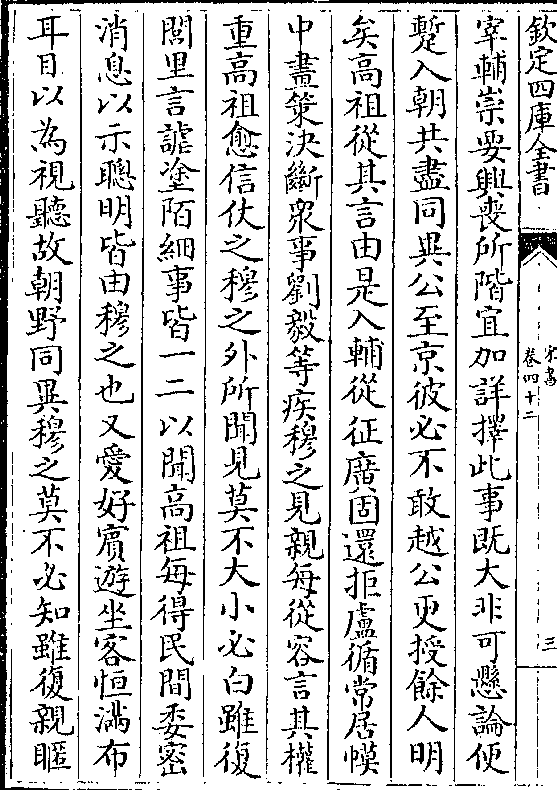 欽定四庫全書
宋書
卷四十二
三
宰輔崇要興喪所階宜加詳擇此事既大非可懸論便
蹔入朝共盡同異公至京彼必不敢越公更授餘人明
矣高祖從其言由是入輔從征廣固還拒盧循常居幙
中畫策決斷衆事劉毅等疾穆之見親每從容言其權
重高祖愈信仗之穆之外所聞見莫不大小必白雖復
閭里言謔塗陌細事皆一二以聞高祖每得民間委密
消息以示聰明皆由穆之也又愛好賓遊坐客恒滿布
耳目以為視聽故朝野同異穆之莫不必知雖復親暱